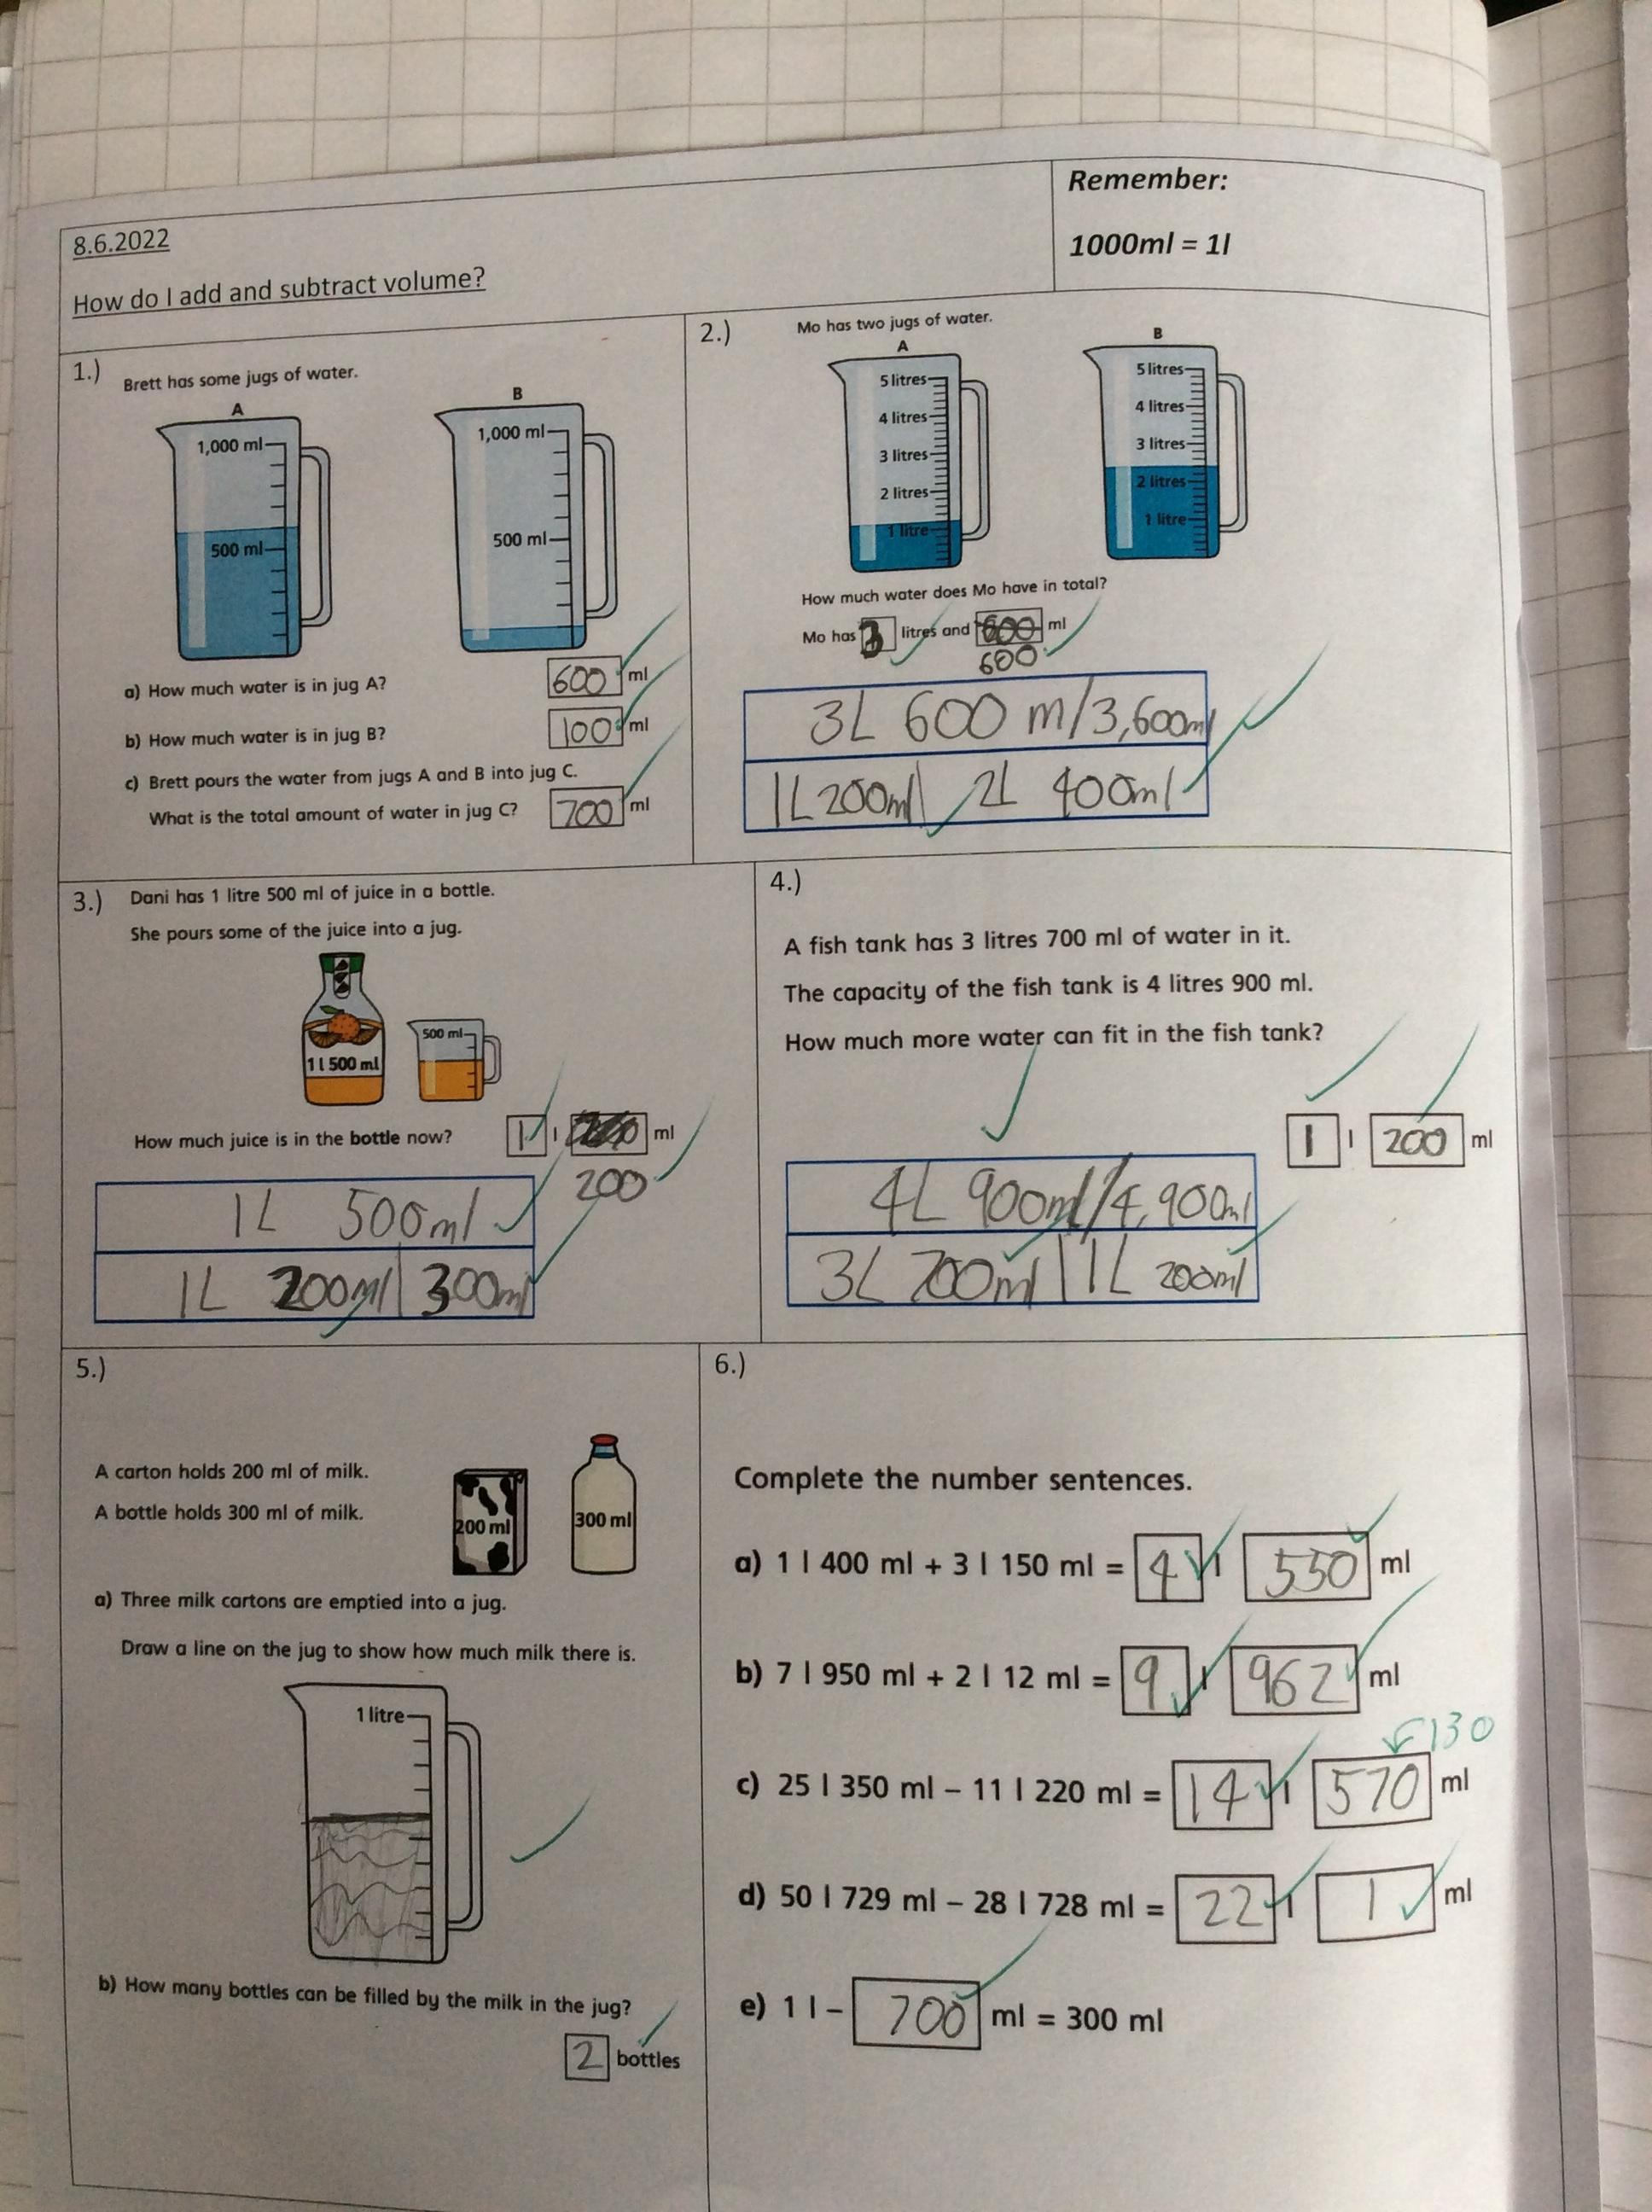 Remember:
1000ml = 1l
8.6.2022
How do I add and subtract volume?
1.)
Brett has some jugs of water.
A
B
1,000 ml
500 ml
1,000 ml
500 ml
a) How much water is in jug A? 600 ml
b) How much water is in jug B? 100 ml
c) Brett pours the water from jugs A and B into jug C.
What is the total amount of water in jug C? 700 ml
2.)
Mo has two jugs of water.
A
B
5 litres
4 litres
3 litres
2 litres
1 litre
5 litres
4 litres
3 litres
2 litres
1 litre
How much water does Mo have in total?
Mo has 3 litres and 600 ml
600
3L 600 m/3,600ml
1L 200ml 2L 400ml
3.)
Dani has 1 litre 500 ml of juice in a bottle.
She pours some of the juice into a jug.
1 l 500 ml
500 ml
How much juice is in the bottle now? 1 l ml
200
1L 500ml
1L 200ml 300ml
4.)
A fish tank has 3 litres 700 ml of water in it.
The capacity of the fish tank is 4 litres 900 ml.
How much more water can fit in the fish tank?
1 l 200 ml
4L 900ml/4,900ml
3L 700ml 1L 200ml
5.)
A carton holds 200 ml of milk.
A bottle holds 300 ml of milk.
200 ml
300 ml
a) Three milk cartons are emptied into a jug.
Draw a line on the jug to show how much milk there is.
1 litre
b) How many bottles can be filled by the milk in the jug?
2 bottles
6.)
Complete the number sentences.
a) 1 l 400 ml + 3 l 150 ml = 4 l 550 ml
b) 7 l 950 ml + 2 l 12 ml = 9 l 962 ml
130
c) 25 l 350 ml – 11 l 220 ml = 14 l 570 ml
d) 50 l 729 ml – 28 l 728 ml = 22 l 1 ml
e) 1 l – 700 ml = 300 ml